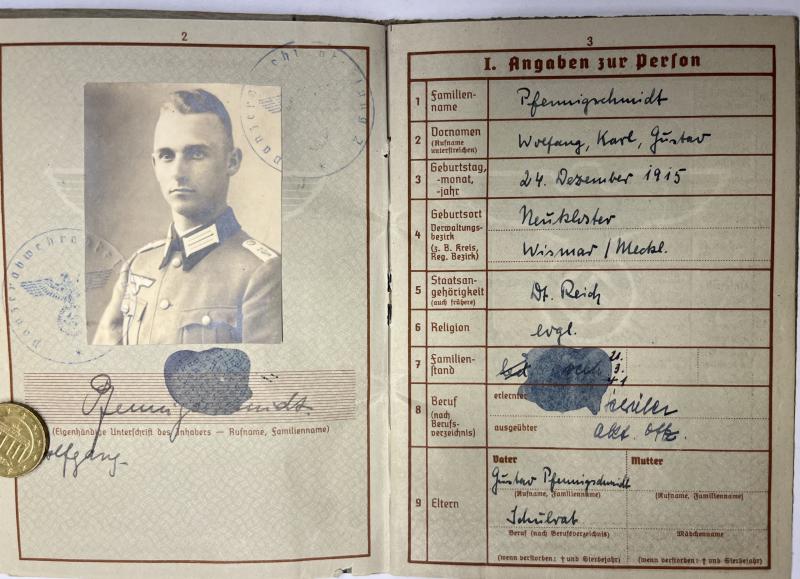 2
Panzerabwehr
Pfennigschmidt
(Eigenhändige Unterschrift des Inhabers — Rufname, Familienname)
Wolfgang
3
I. Angaben zur Person
1 Familien-
name
Pfennigschmidt
2 Vornamen
(Rufname
unterstreichen)
Wolfang, Karl, Gustav
3 Geburtstag,
-monat,
-jahr
24. Dezember 1915
4 Geburtsort
Verwaltungs-
bezirk
(z. B. Kreis,
Reg. Bezirk)
Neukloster
Wismar / Meckl.
5 Staatsan-
gehörigkeit
(auch frühere)
Dt. Reich
6 Religion
evgl.
7 Familien-
stand
8 Beruf
(nach
Berufs-
verzeichnis)
erlernter
Schüler
ausgeübter
akt. Offz.
9 Eltern
Vater
Mutter
Gustav Pfennigschmidt
(Rufname, Familienname)
(Rufname, Familienname)
Schulrat
Beruf (nach Berufsverzeichnis)
Mädchenname
(wenn verstorben: † und Sterbejahr)
(wenn verstorben: † und Sterbejahr)